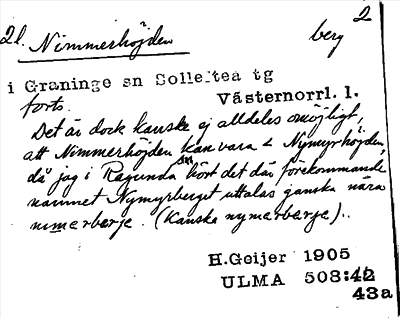 2l. Nimmerhöjden berg 2
i Graninge sn Sollefteå tg
forts. Västernorrl. l.
Det är dock kanske ej alldeles omöjligt,
att Nimmerhöjden kan vara < Nymyrhöjden,
då jag i Ragunda sn hört det där förekommande
namnet Nymyrberget uttalas ganska nära
nimerberje. (Kanska nymerberje)..
H.Geijer 1905
ULMA 508:42
43a